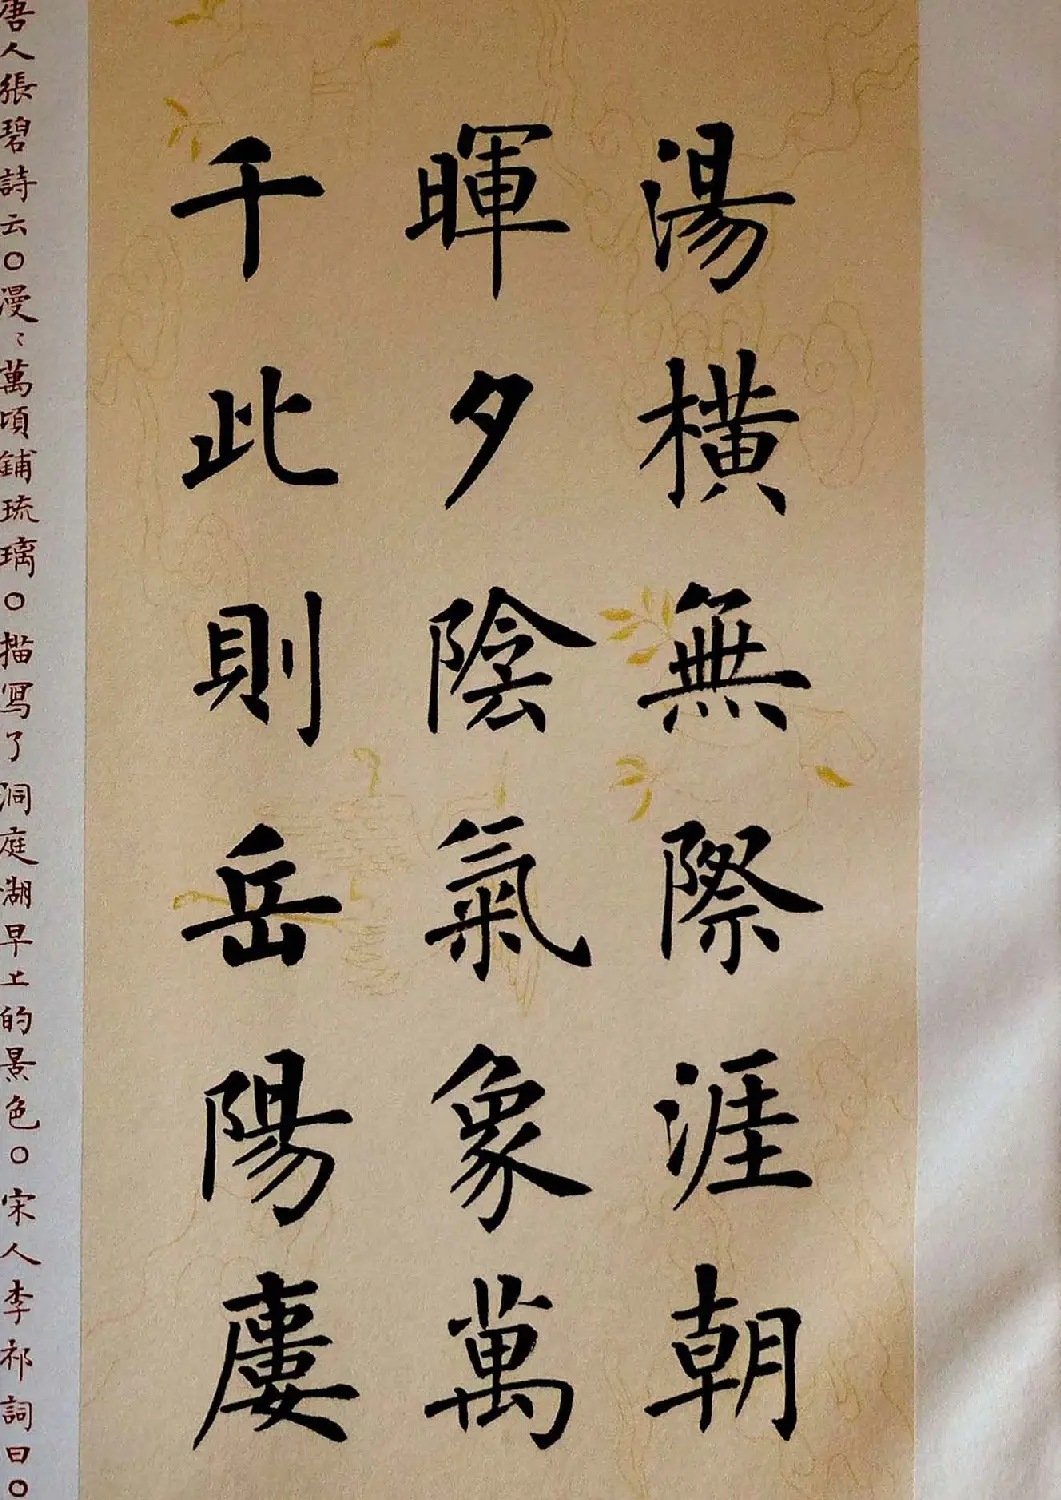 湯橫無際涯朝
暉夕陰氣象萬
千此則岳陽廔
唐人張碧詩云○漫〻萬頃鋪琉璃○描寫了洞庭湖早上的景色○宋人李祁詞曰○